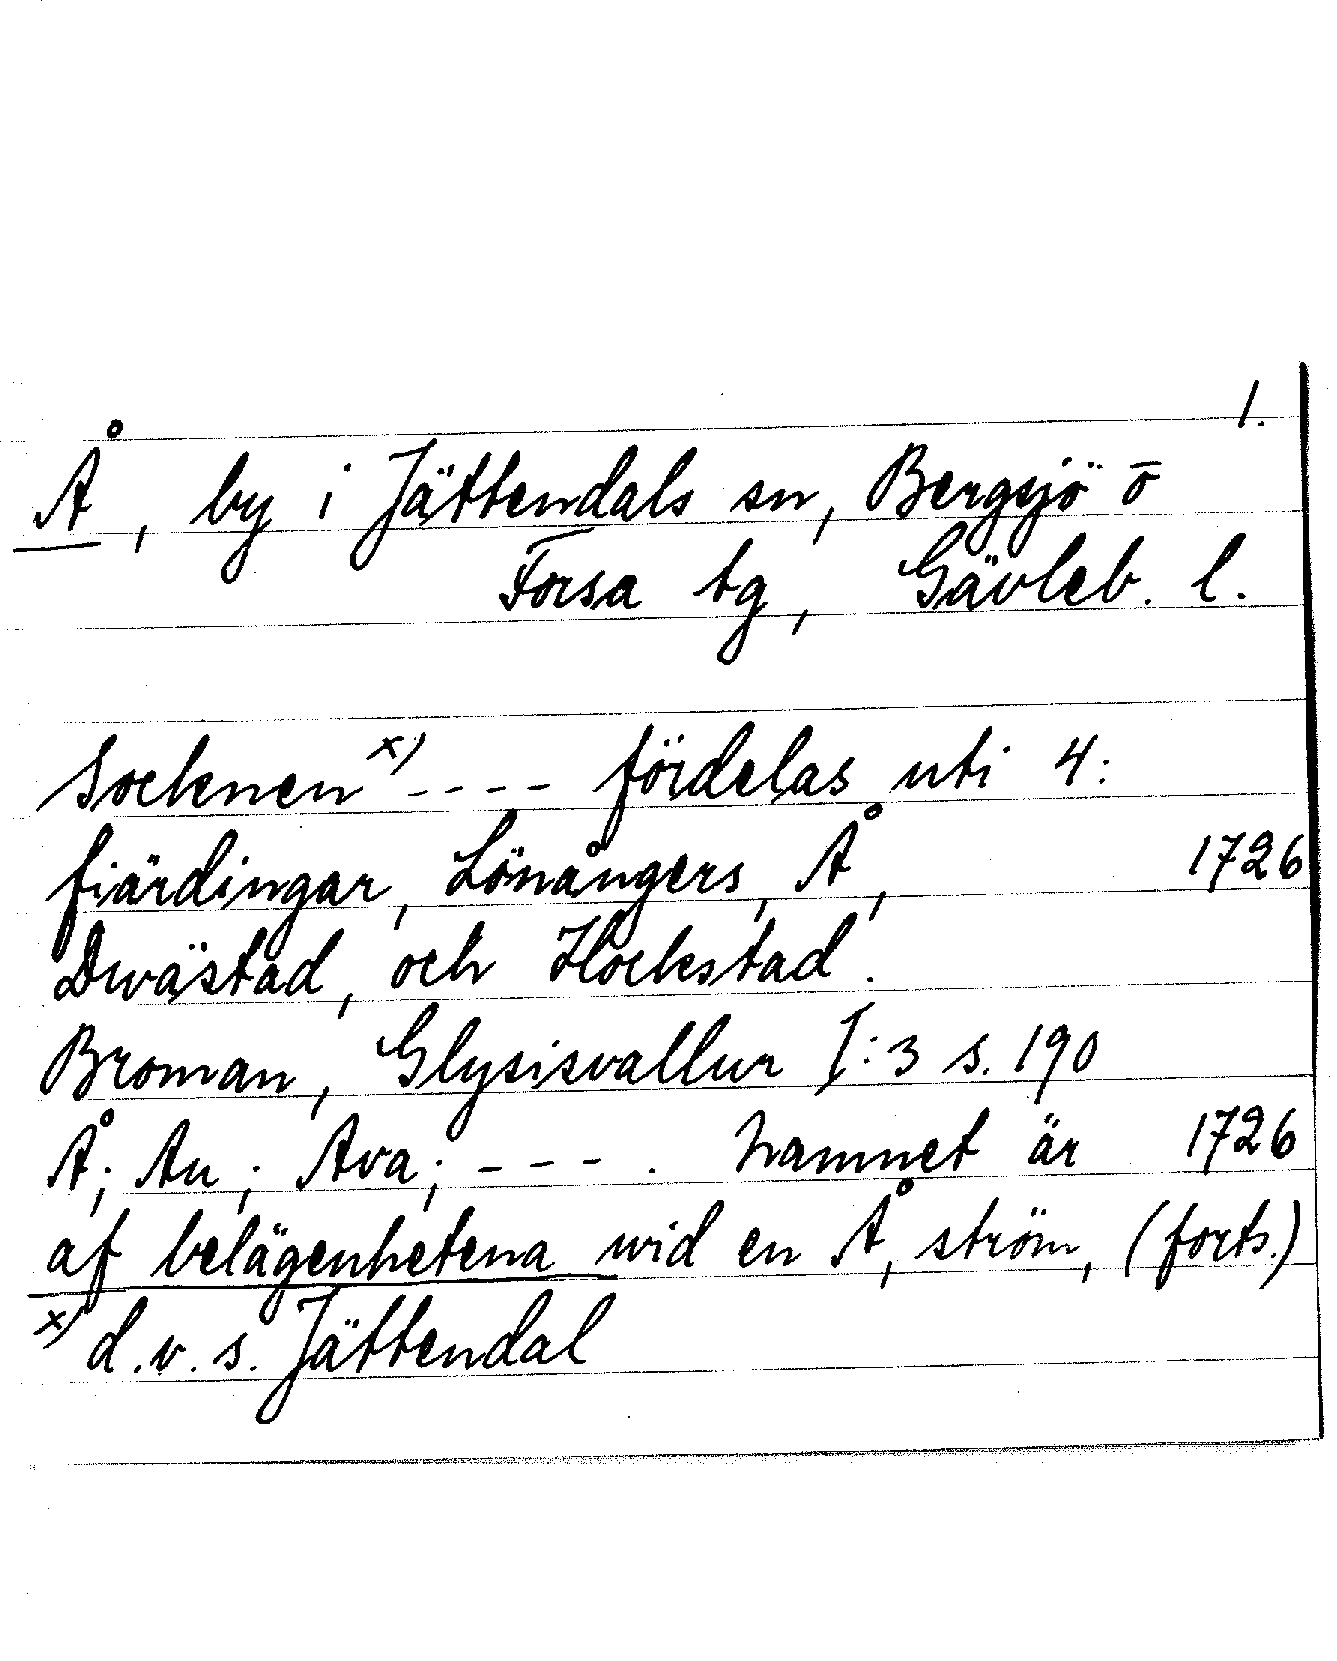 1.
Å, by i Jättendals sn, Bergsjö o
Forsa tg, Gävleb. l.
Socknen x) ---- fördelas uti 4:
fiärdingar, Lönångers, Å, 1726
Dwästad, och Hockstad.
Broman, Glysisvallur I:3 s. 190
Å; Au; Ava; ---. Namnet är 1726
af belägenhetena wid en Å, ström, (forts.)
x) d.v.s. Jättendal